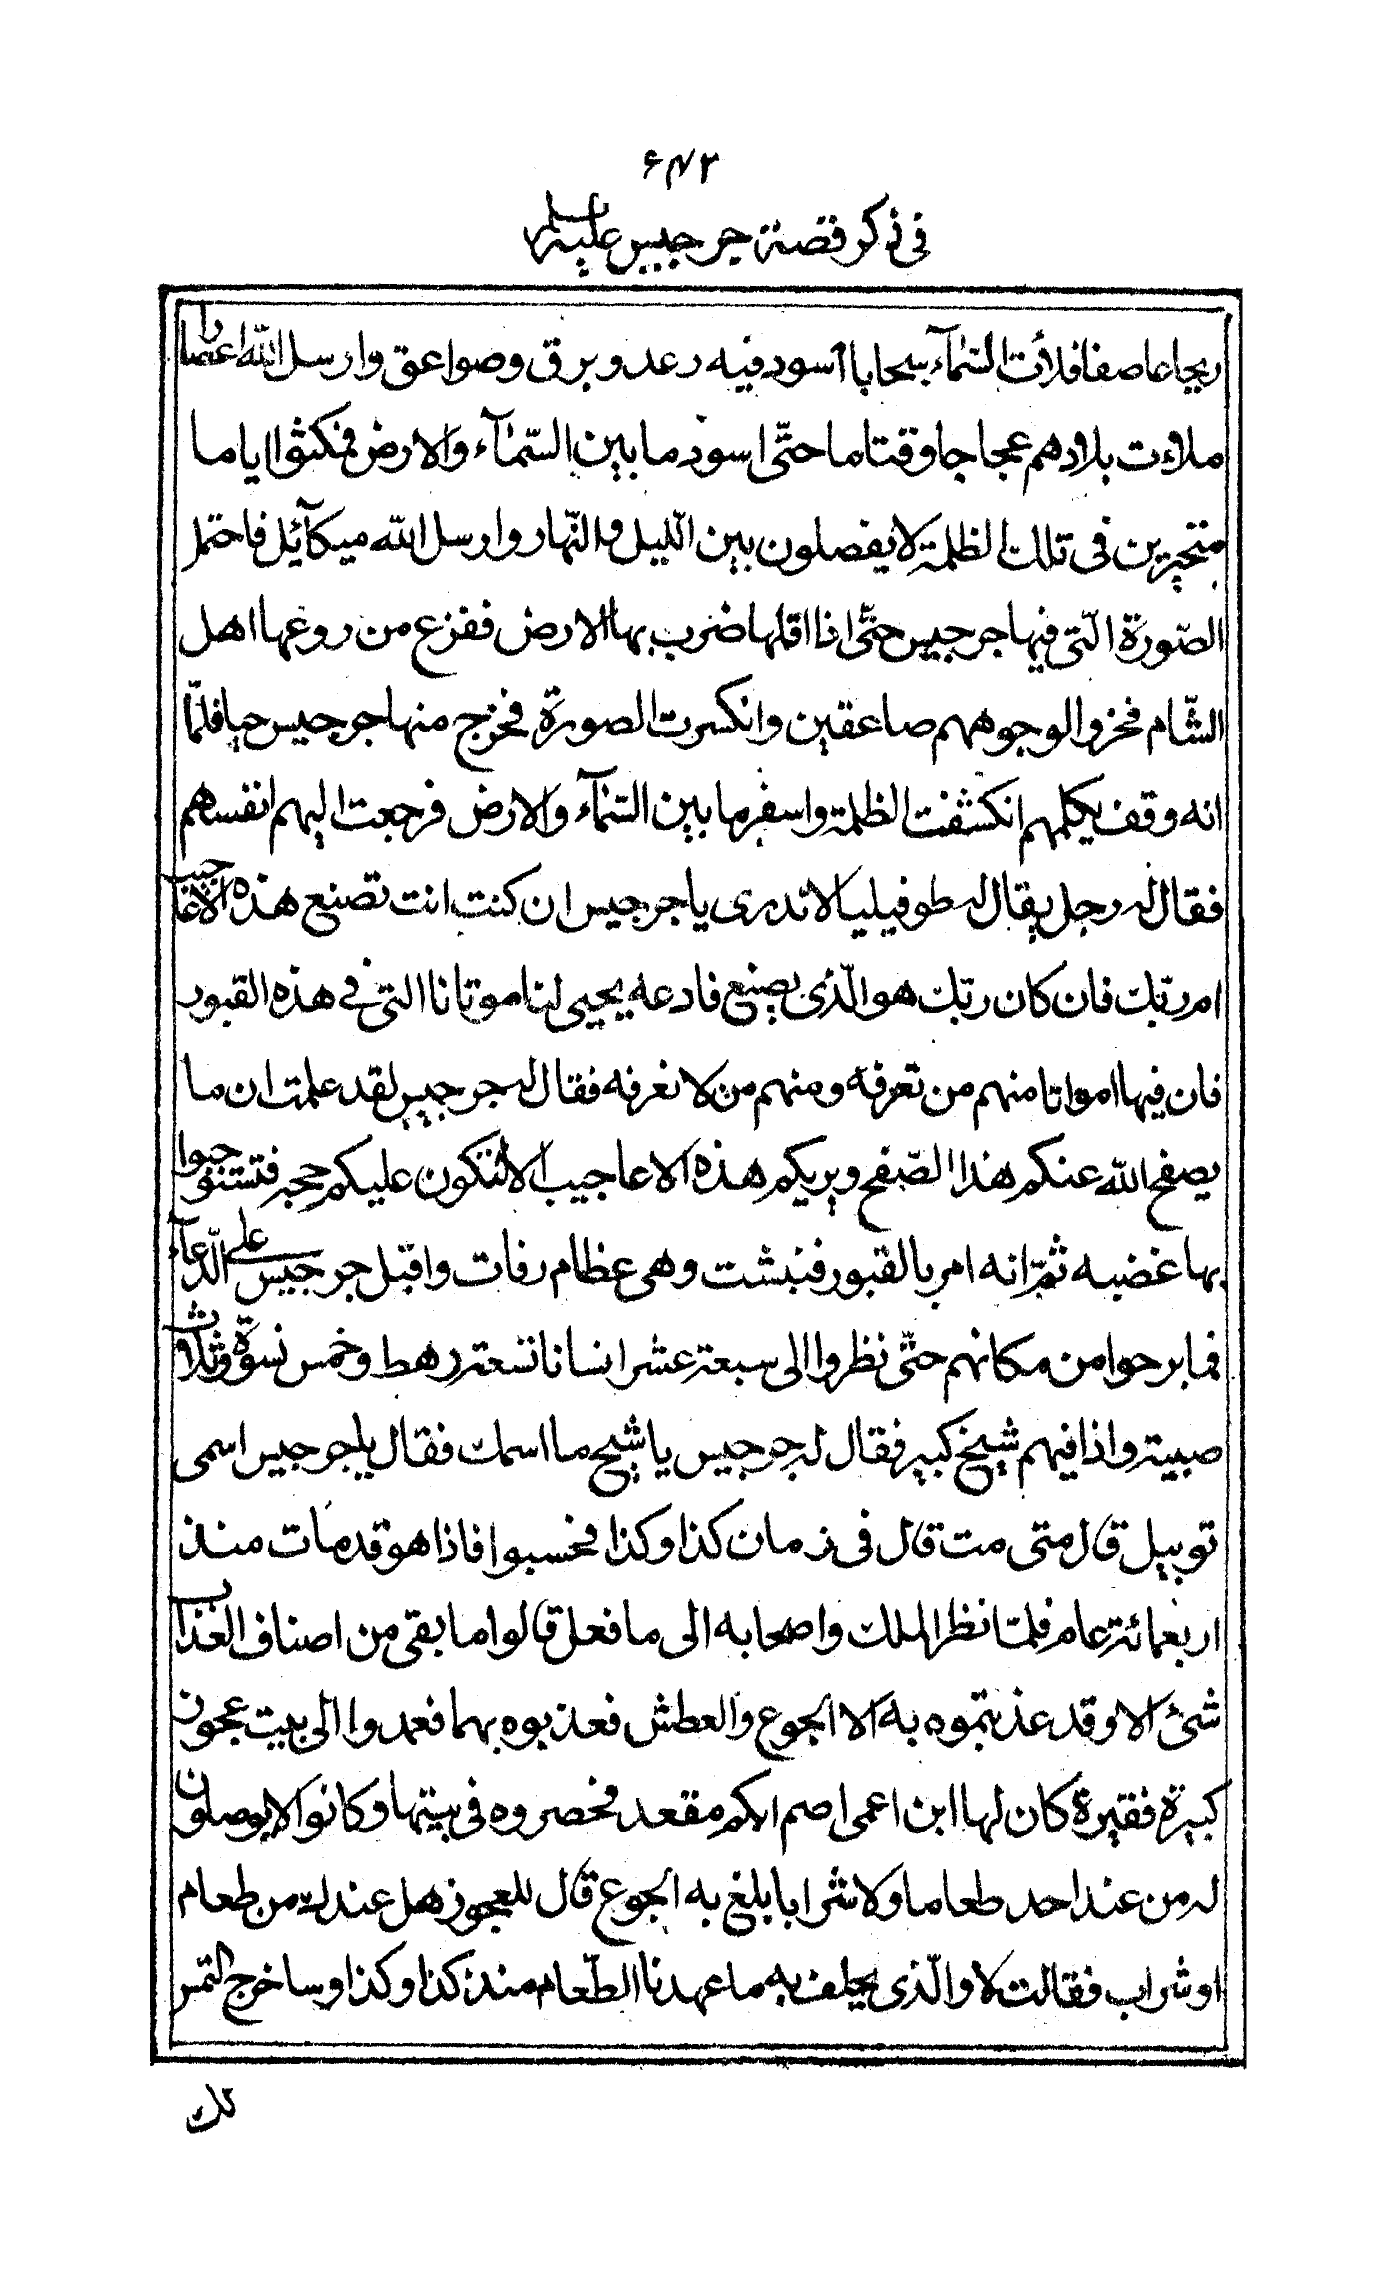 ۶۴۳
فی ذکر قصة جرجیس علیه السلم
ریحا عاصفا فملأت السّمآء سحابا أسود فیه رعد و برق و صواعق و ارسل الله اعصارا
ملاءت بلادهم عجاجا و قتاما حتّی اسود ما بین السّمآء و الارض فمکثوا ایاما
متحیرین فی تلک الظلمة لا یفصلون بین اللّیل و النّهار و ارسل الله میکآئیل فاحتمل
الصّورة الّتی فیها جرجیس حتّی اذا اقلها ضرب بها الارض ففزع من روعها اهل
الشّام فخروا لوجوههم صاعقین و انکسرت الصورة فخرج منها جرجیس حیا فلمّا
انه وقف یکلمهم انکشفت الظلمة و اسفر ما بین السّمآء و الارض فرجعت الیهم انفسهم
فقال له رجل یقال له طوفیلیا لا ندری یا جرجیس ان کنت انت تصنع هذه الاعاجیب
ام ربّک فان کان ربّک هو الّذی یصنع فادعه یحیی لنا موتانا التی فی هذه القبور
فان فیها امواتا منهم من نعرفه و منهم من لا نعرفه فقال له جرجیس لقد علمت ان ما
یصفح الله عنکم هذا الصّفح و یریکم هذه الاعاجیب الا لتکون علیکم حجة فتستوجبوا
بها غضبه ثمّ انه امر بالقبور فنبشت و هی عظام رفات و اقبل جرجیس علی الدّعآء
فما برحوا من مکانهم حتّی نظروا الی سبعة عشر انسانا تسعة رهط و خمس نسوة و ثلاث
صبیة و اذا فیهم شیخ کبیر فقال له جرجیس یا شیخ ما اسمک فقال یا جرجیس اسمی
توبیل قال متی مت قال فی زمان کذا و کذا فحسبوا فاذا هو قد مات منذ
اربعمائة عام فلمّا نظر الملک و اصحابه الی ما فعل قالوا ما بقی من اصناف العذاب
شئ الا و قد عذبتموه به الا الجوع و العطش فعذبوه بهما فعمدوا الی بیت عجوز
کبیرة فقیرة کان لها ابن اعمی اصم ابکم مقعد فحصروه فی بیتها و کانوا لا یوصلون
له من عند احد طعاما و لا شرابا بلغ به الجوع قال للعجوز هل عندک من طعام
او شراب فقالت لا و الّذی یحلف به ما عهدنا الطّعام منذ کذا و کذا و ساخرج التمر
لک